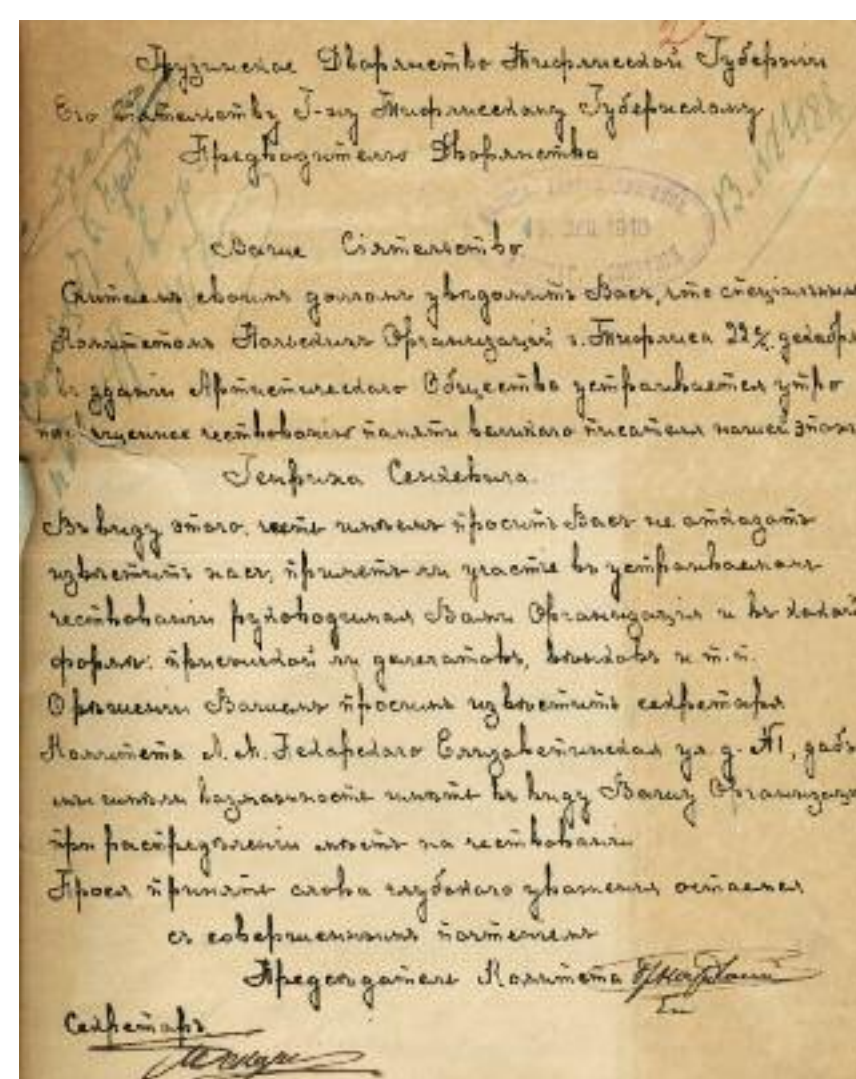 Грузинское Дворянство Тифлисской Губернии
Его Сіятельству Г-ну Тифлисскому Губернскому
Предводителю Дворянства
13. XII
1910
Ваше Сіятельство.
Считаемъ своимъ долгомъ увѣдомить Васъ, что спеціальнымъ
Комитетомъ Польскихъ Организацій г. Тифлиса 22 декабр
въ зданіи Артистическаго Общества устраивается утро
посвященное чествованію памяти великаго писателя нашей эпох
Генриха Сенкевича.
Въ виду этого, честь имѣемъ просить Васъ не отказать
извѣстить насъ, приметъ ли участіе въ устраиваемомъ
чествованіи руководимая Вами Организація и въ какой
формѣ: присылкой ли делегатовъ, вѣнковъ и т. п.
О рѣшеніи Вашемъ просимъ извѣстить секретаря
Комитета Елизаветинская ул. д. №1, дабы
мы имѣли возможность имѣть въ виду Вашу Организац
при распредѣленіи мѣстъ на чествованіи
Прося принять слова глубокаго уваженія остаемся
съ совершеннымъ почтеніемъ
Предсѣдатель Комитета
Секретарь